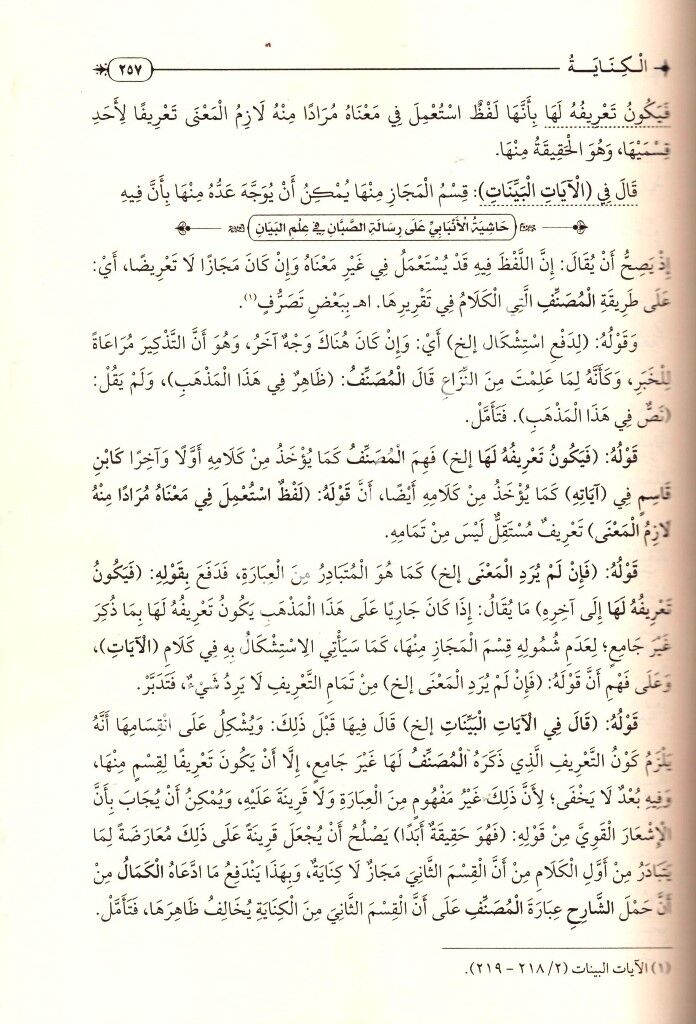 الْكِنَايَـــةُ
٢٥٧
فَيَكُونُ تَعْرِيفُهُ لَهَا بِأَنَّهَا لَفْظٌ اسْتُعْمِلَ فِي مَعْنَاهُ مُرَادًا مِنْهُ لَازِمُ الْمَعْنَى تَعْرِيفًا لِأَحَدِ
قِسْمَيْهَا، وَهُوَ الْحَقِيقَةُ مِنْهَا.
قَالَ فِي (الْآيَاتِ الْبَيِّنَاتِ): قِسْمُ الْمَجَازِ مِنْهَا يُمْكِنُ أَنْ يُوَجَّهَ عَدُّهُ مِنْهَا بِأَنَّ فِيهِ
حَاشِيَةُ الْأَنْبَابِيِّ عَلَى رِسَالَةِ الصَّبَّانِ فِي عِلْمِ البَيَانِ
إِذْ يَصِحُّ أَنْ يُقَالَ: إِنَّ اللَّفْظَ فِيهِ قَدْ يُسْتَعْمَلُ فِي غَيْرِ مَعْنَاهُ وَإِنْ كَانَ مَجَازًا لَا تَعْرِيضًا، أَيْ:
عَلَى طَرِيقَةِ الْمُصَنِّفِ الَّتِي الْكَلَامُ فِي تَقْرِيرِهَا. اهـ بِبَعْضِ تَصَرُّفٍ(١).
وَقَوْلُهُ: (لِدَفْعِ اسْتِشْكَالِ إلخ) أَيْ: وَإِنْ كَانَ هُنَاكَ وَجْهٌ آخَرُ، وَهُوَ أَنَّ التَّذْكِيرَ مُرَاعَاةً
لِلْخَبَرِ، وَكَأَنَّهُ لِمَا عَلِمْتَ مِنَ النِّزَاعِ قَالَ الْمُصَنِّفُ: (ظَاهِرٌ فِي هَذَا الْمَذْهَبِ)، وَلَمْ يَقُلْ:
(نَصٌّ فِي هَذَا الْمَذْهَبِ). فَتَأَمَّلْ.
قَوْلُهُ: (فَيَكُونُ تَعْرِيفُهُ لَهَا إلخ) فَهِمَ الْمُصَنِّفُ كَمَا يُؤْخَذُ مِنْ كَلَامِهِ أَوَّلًا وَآخِرًا كَابْنِ
قَاسِمٍ فِي (آيَاتِهِ) كَمَا يُؤْخَذُ مِنْ كَلَامِهِ أَيْضًا، أَنَّ قَوْلَهُ: (لَفْظٌ اسْتُعْمِلَ فِي مَعْنَاهُ مُرَادًا مِنْهُ
لَازِمُ الْمَعْنَى) تَعْرِيفٌ مُسْتَقِلٌّ لَيْسَ مِنْ تَمَامِهِ.
قَوْلُهُ: (فَإِنْ لَمْ يُرَدِ الْمَعْنَى إلخ) كَمَا هُوَ الْمُتَبَادِرُ مِنَ الْعِبَارَةِ، فَدَفَعَ بِقَوْلِهِ: (فَيَكُونُ
تَعْرِيفُهُ لَهَا إِلَى آخِرِهِ) مَا يُقَالُ: إِذَا كَانَ جَارِيًا عَلَى هَذَا الْمَذْهَبِ يَكُونُ تَعْرِيفُهُ لَهَا بِمَا ذُكِرَ
غَيْرَ جَامِعٍ؛ لِعَدَمِ شُمُولِهِ قِسْمَ الْمَجَازِ مِنْهَا، كَمَا سَيَأْتِي الِاسْتِشْكَالُ بِهِ فِي كَلَامِ (الْآيَاتِ)،
وَعَلَى فَهْمِ أَنَّ قَوْلَهُ: (فَإِنْ لَمْ يُرَدِ الْمَعْنَى إلخ) مِنْ تَمَامِ التَّعْرِيفِ لَا يَرِدُ شَيْءٌ، فَتَدَبَّرْ.
قَوْلُهُ: (قَالَ فِي الْآيَاتِ الْبَيِّنَاتِ إلخ) قَالَ فِيهَا قَبْلَ ذَلِكَ: وَيُشْكِلُ عَلَى انْقِسَامِهَا أَنَّهُ
يَلْزَمُ كَوْنُ التَّعْرِيفِ الَّذِي ذَكَرَهُ الْمُصَنِّفُ لَهَا غَيْرَ جَامِعٍ، إِلَّا أَنْ يَكُونَ تَعْرِيفًا لِقِسْمٍ مِنْهَا،
وَفِيهِ بُعْدٌ لَا يَخْفَى؛ لِأَنَّ ذَلِكَ غَيْرُ مَفْهُومٍ مِنَ الْعِبَارَةِ وَلَا قَرِينَةَ عَلَيْهِ، وَيُمْكِنُ أَنْ يُجَابَ بِأَنَّ
الْإِشْعَارَ الْقَوِيَّ مِنْ قَوْلِهِ: (فَهُوَ حَقِيقَةٌ أَبَدًا) يَصْلُحُ أَنْ يُجْعَلَ قَرِينَةً عَلَى ذَلِكَ مُعَارَضَةً لِمَا
يَتَبَادَرُ مِنْ أَوَّلِ الْكَلَامِ مِنْ أَنَّ الْقِسْمَ الثَّانِيَ مَجَازٌ لَا كِنَايَةٌ، وَبِهَذَا يَنْدَفِعُ مَا ادَّعَاهُ الْكَمَالُ مِنْ
أَنَّ حَمْلَ الشَّارِحِ عِبَارَةَ الْمُصَنِّفِ عَلَى أَنَّ الْقِسْمَ الثَّانِيَ مِنَ الْكِنَايَةِ يُخَالِفُ ظَاهِرَهَا، فَتَأَمَّلْ.
(١) الآيات البينات (٢/ ٢١٨ - ٢١٩).